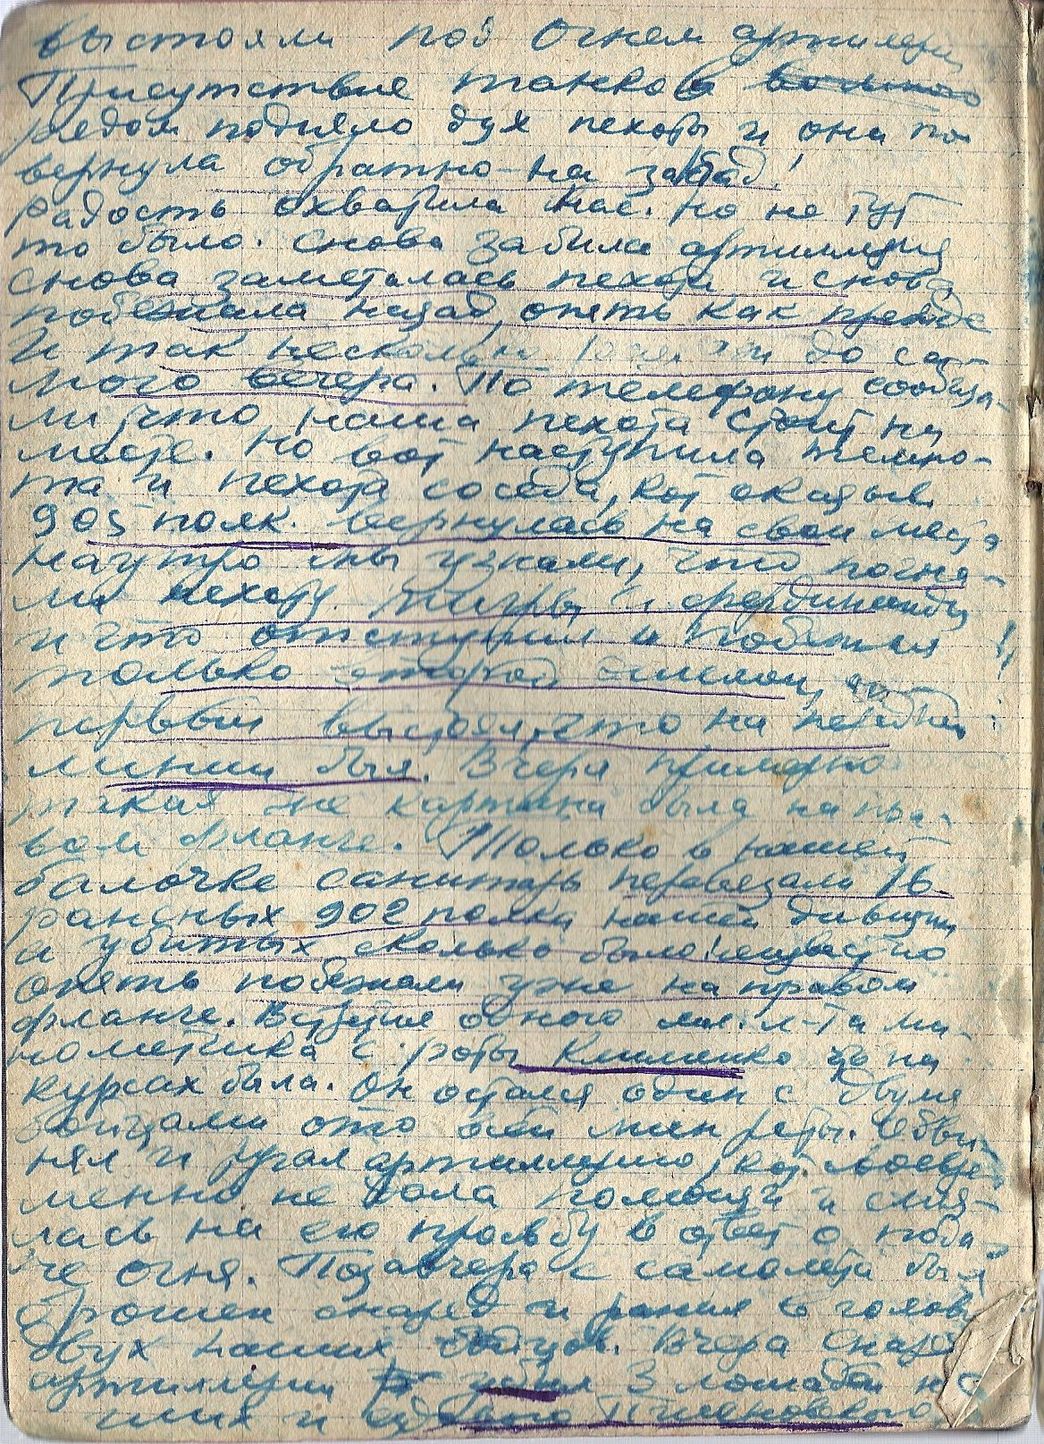 выстояли под огнем артилерии
Присутствие танков
рядом подняло дух пехоты и она по
вернула обратно на запад!
радость охватила нас. но не тут
то было. снова забила артиллерия
снова заметалась пехота и снова
побежала назад, опять как прежде
И так несколько до са-
мого вечера. По телефону сообща-
ли, что наша пехота стоит на
месте. Но вот наступила темно-
та и пехота соседа, кот
905 полк. вернулась на свои места
наутро мы узнали, что погна-
ли пехоту тигры и фердинанды
и что отступил и побежал !
только второй эшелон, а
первый выстоял, что на передней
линии был. Вчера примерно
такая же картина была на пра-
вом фланге. Только в нашей
балочке санитары перевязали 16
раненых 902 полка нашей дивизии
а убитых сколько было неизвестно
опять побежали уже на правом
фланге. Встретил одного мл. л-та ми-
нометчика с роты Клименко на
курсах была. Он остался один с двумя
бойцами ото всей мин роты. Обви-
нял и ругал артиллерию, кот. своевре-
менно не дала помощи и смея-
лась на его просьбу в ответ о пода-
че огня. Позавчера с самолета был
брошен снаряд и ранил в голову
двух наших бойцов. Вчера снаряд
артиллерии убил 3 лошадей на-
ших и